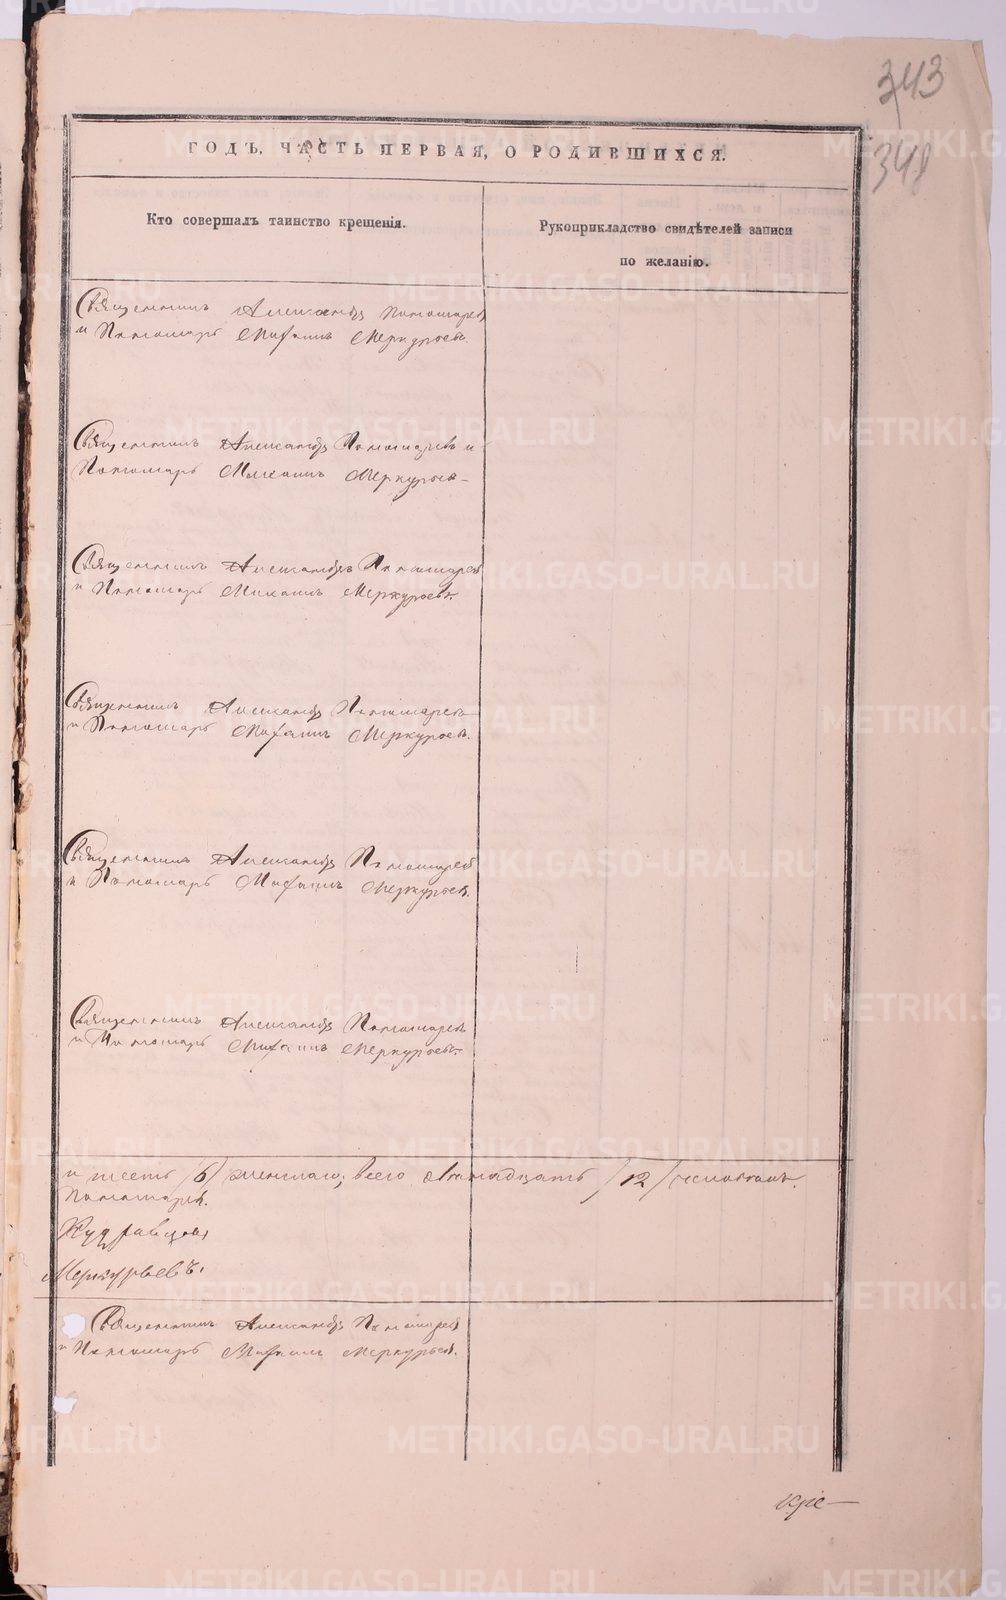 343
348
ГОДЪ. ЧАСТЬ ПЕРВАЯ, О РОДИВШИХСЯ.
Кто совершалъ таинство крещенія.
Рукоприкладство свидѣтелей записи
по желанію.
Священникъ Александръ Пономаревъ
и Пономарь Михаилъ Меркурьевъ.
Священникъ Александръ Пономаревъ и
Пономарь Михаилъ Меркурьевъ
Священникъ Александръ Пономаревъ
и Пономарь Михаилъ Меркурьевъ.
Священникъ Александръ Пономаревъ
и Пономарь Михаилъ Меркурьевъ.
Священникъ Александръ Пономаревъ
и Пономарь Михаилъ Меркурьевъ.
Священникъ Александръ Пономаревъ
и Пономарь Михаилъ Меркурьевъ.
и шесть /6/ женскаго, всего двенадцать /12/ человекъ.
Пономаревъ.
Кудрявцовъ
Меркурьевъ.
Священникъ Александръ Пономаревъ
и Пономарь Михаилъ Меркурьевъ.
кре-
METRIKI.GASO-URAL.RU